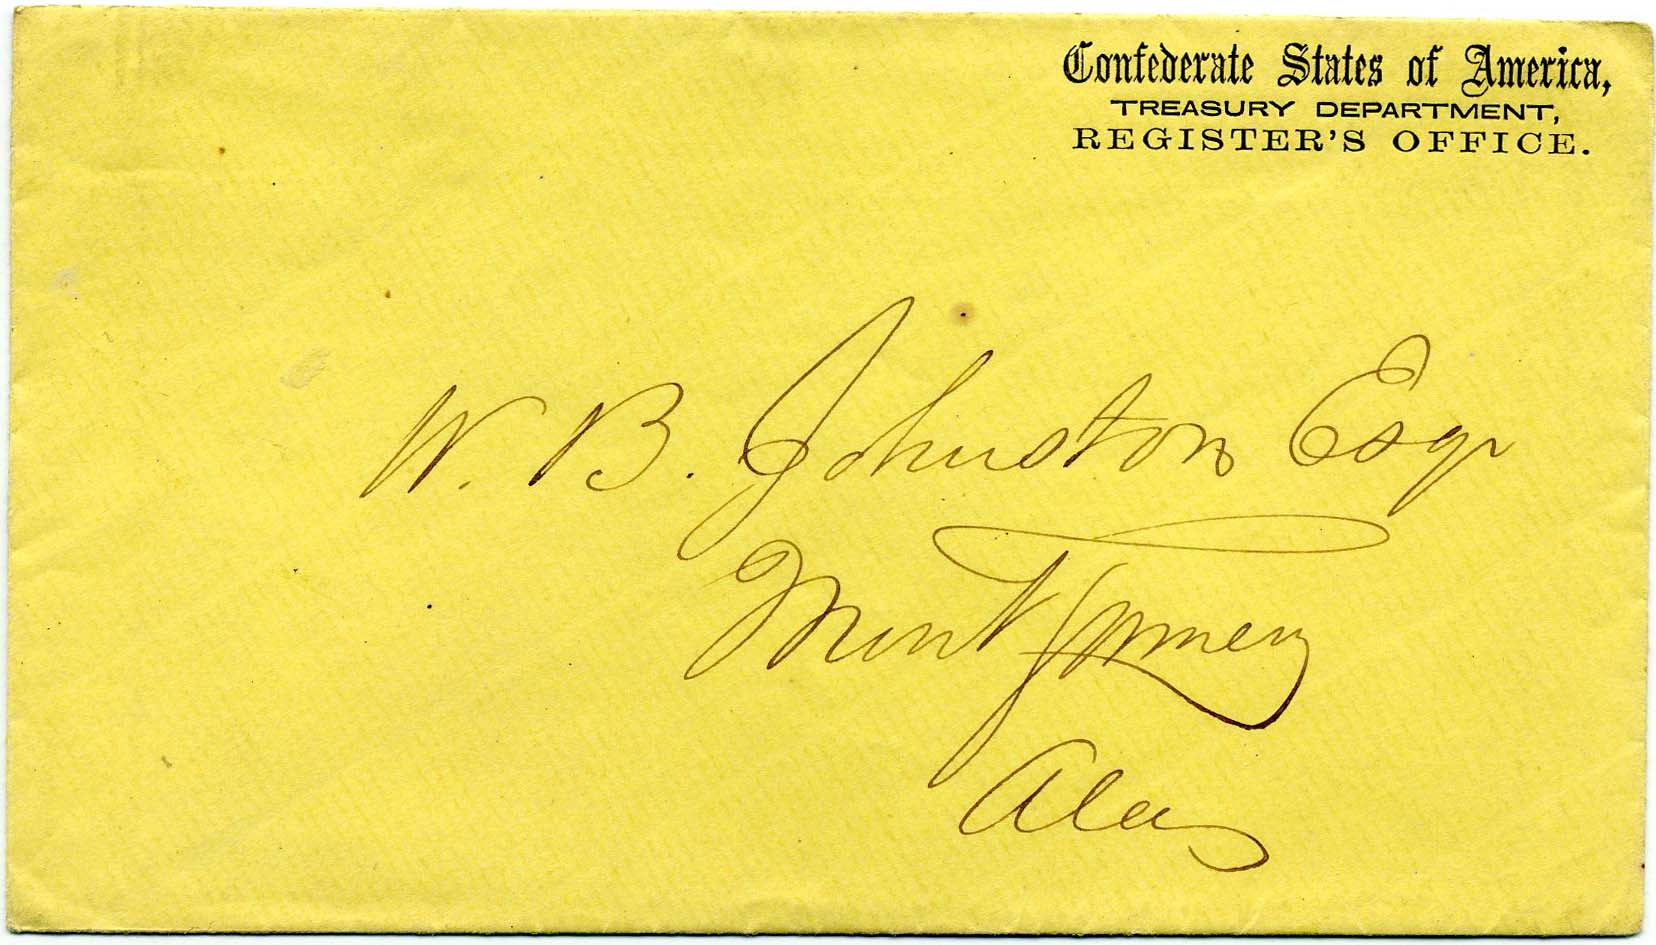 Confederate States of America,
TREASURY DEPARTMENT,
REGISTER'S OFFICE.
W. B. Johnston Esqr
Montgomery
Ala